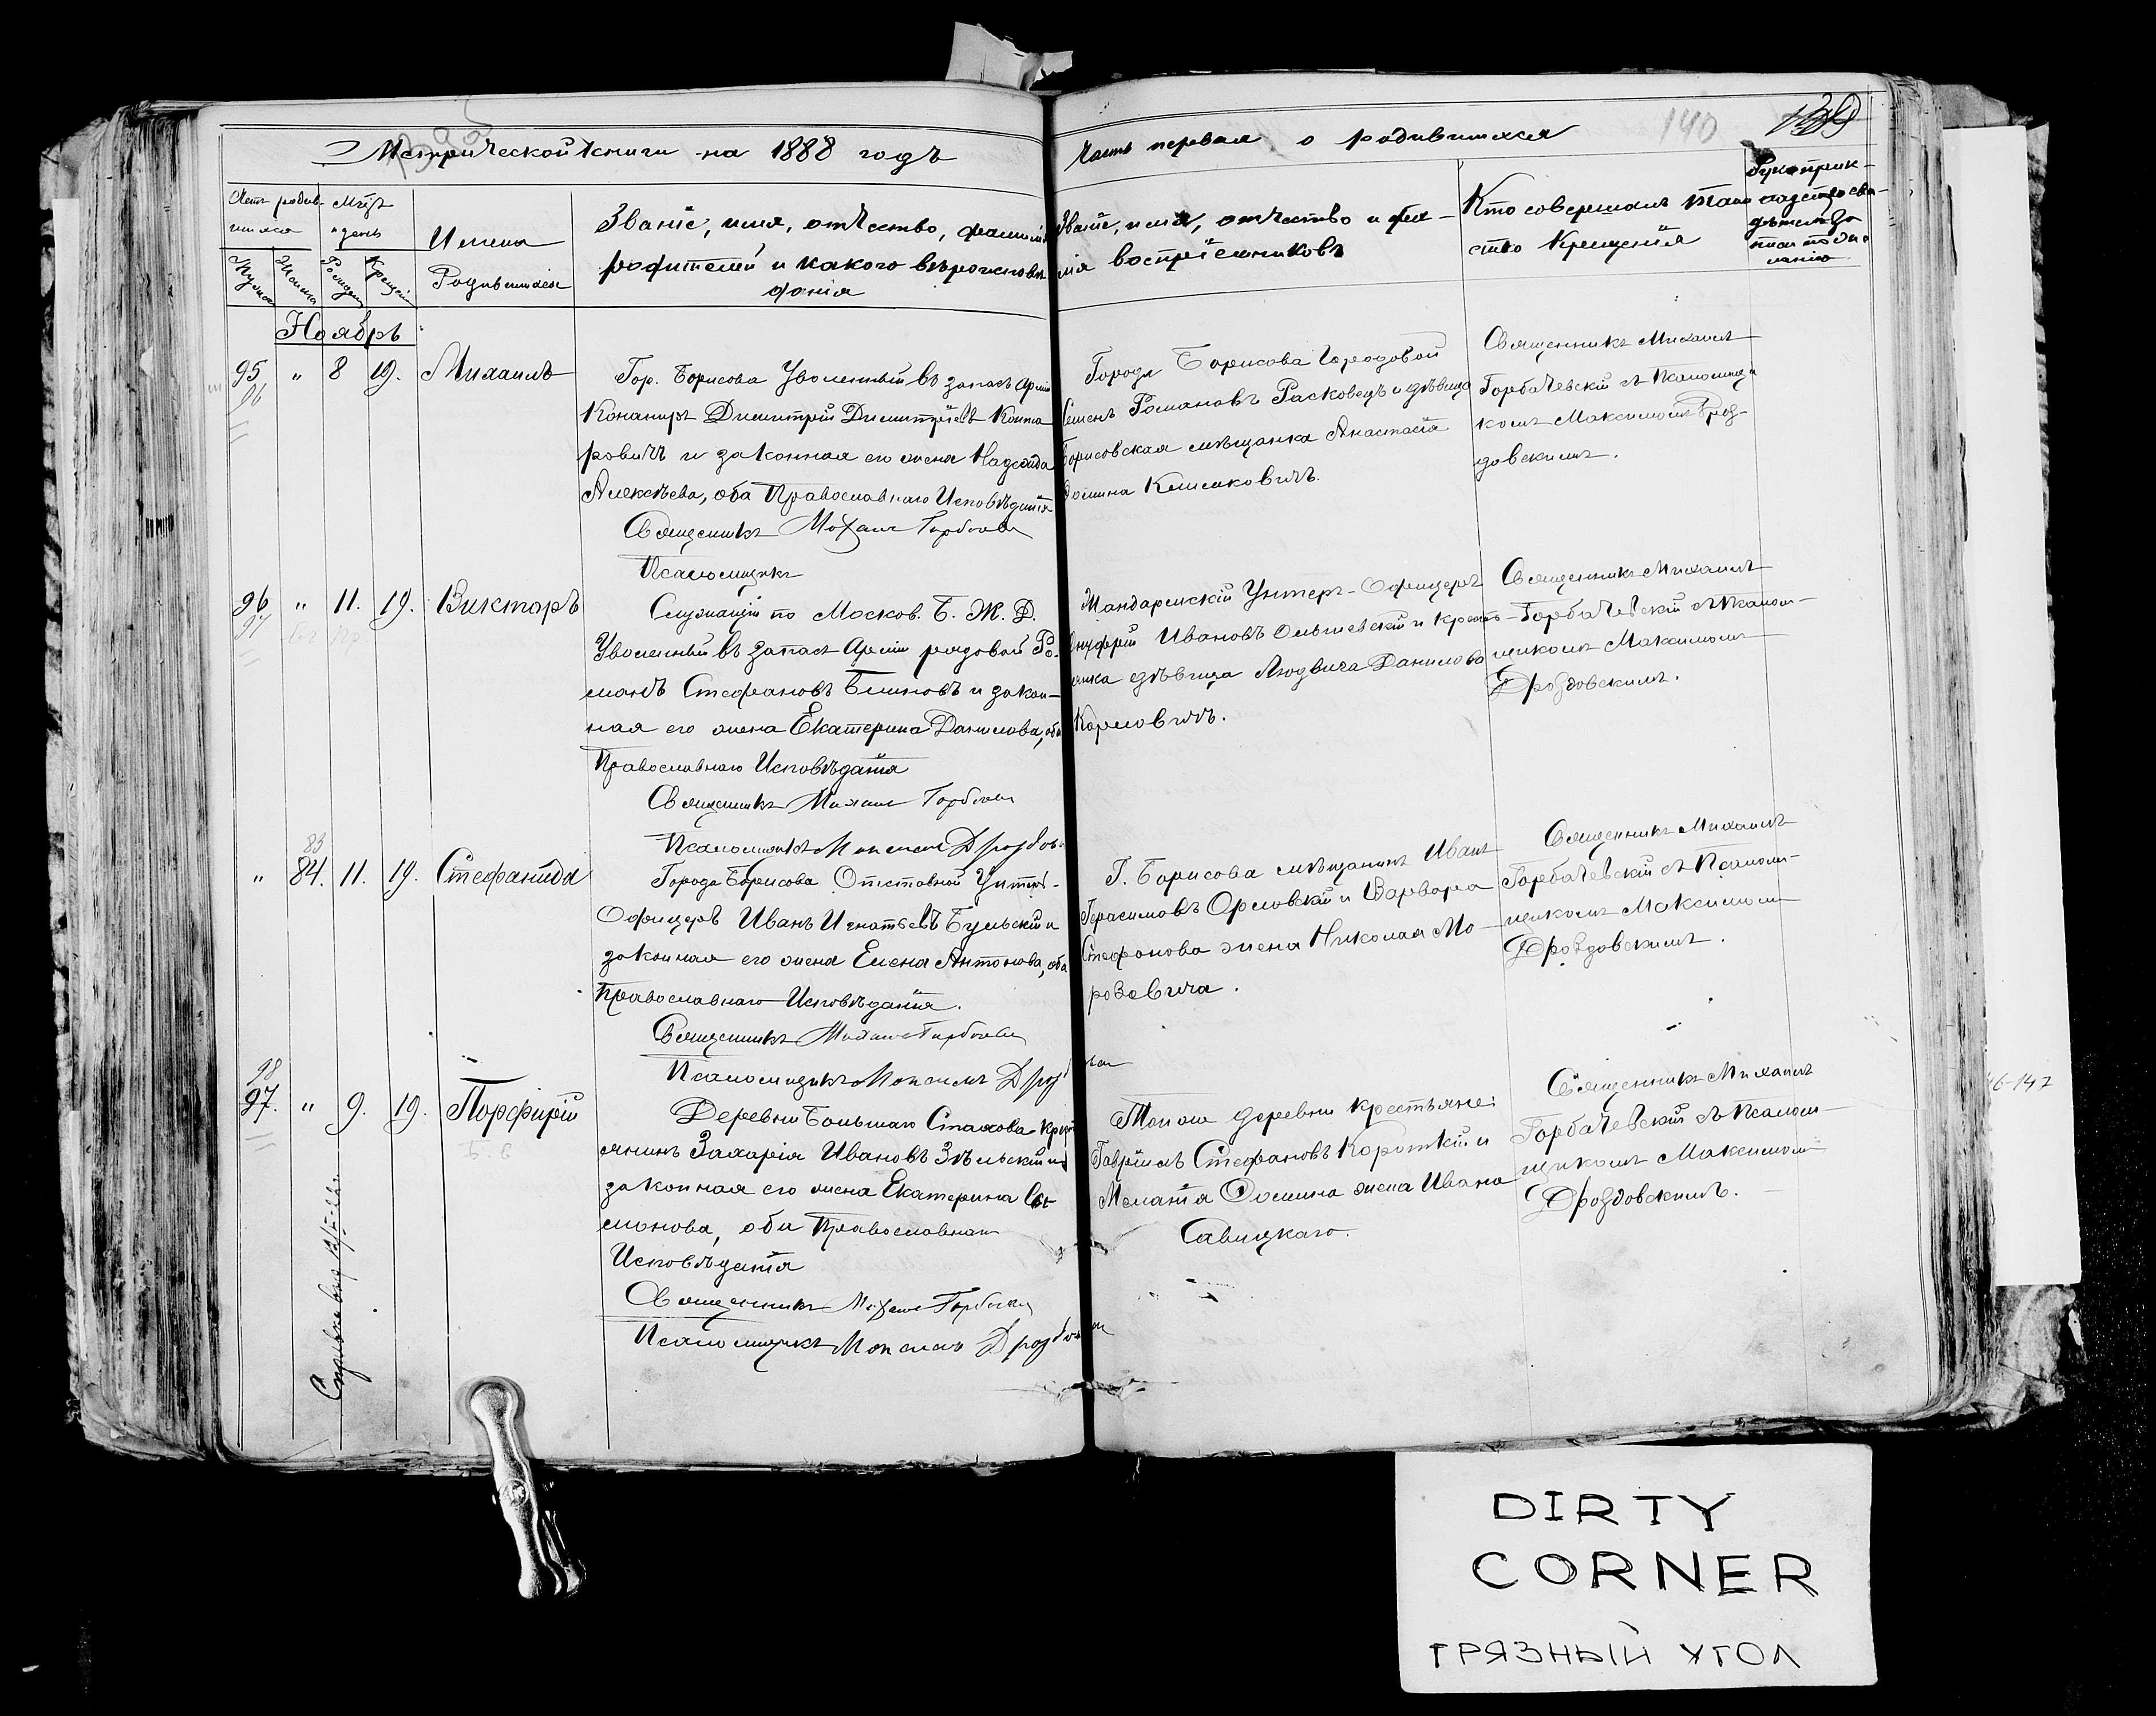 Метрической книги на 1888 годъ
Часть первая о родившихся
140
139
Счетъ родив-
шихся
Мѣсяцъ
и день
Имена
Родившихся
Званіе, имя, отчество, фамилія
родителей и какого вѣроисповѣ-
данія
Мужска
Женска
Рожден
Крещен
Званіе, имя, отчество и фами-
лія воспріемниковъ
Кто совершалъ таин-
ство Крещенія
Рукоприк-
ладство сви-
дѣтелей
Ноябрь
95 " 8 19. Михаилъ
96
Гор. Борисова Уволенный въ запасъ арміи
Канониръ Димитрій Димитріевъ
ровичъ и законная его жена Надежда
Алексѣева, оба Православнаго Исповѣданія
Священникъ Михаилъ
Псаломщикъ
Города Борисова Городовой
Семенъ Романовъ Расковецъ и дѣвица
Борисовская мѣщанка Анастасія
Климковичъ.
Священникъ Михаилъ
Горбачевскій съ Псаломщи
комъ Максимомъ Дроз-
довскимъ.
96 " 11. 19. Викторъ
97
Служащій по Москов. Б. Ж. Д.
Уволенный въ запасъ Арміи рядовой Ро-
манъ Стефановъ Блиновъ и закон-
ная его жена Екатерина Данилова, оба
Православнаго Исповѣданія
Священникъ Михаилъ
Псаломщикъ Максимъ
Жандармскій Унтеръ-Офицеръ
Онуфрій Ивановъ Ольшевскій и кресть-
янка дѣвица Людвига Данилова
Карловичъ.
Священникъ Михаилъ
Горбачевскій съ Псалом-
щикомъ Максимомъ
Дроздовскимъ.
83
" 84. 11. 19. Стефанида
Города Борисова Отставной Унтеръ-
Офицеръ Иванъ Игнатьевъ Бульскій и
законная его жена Елена Антонова, оба
Православнаго Исповѣданія.
Священникъ Михаилъ
Псаломщикъ Максимъ
Г. Борисова мѣщанинъ Иванъ
Герасимовъ Орловскій и Варвара
Стефанова жена Николая Мо-
розовича.
Священникъ Михаилъ
Горбачевскій съ Псалом-
щикомъ Максимомъ
Дроздовскимъ.
98
97. " 9. 19. Порфирій
Деревни Большаго Стахова крест
янинъ Захарія Ивановъ Зѣльскій и
законная его жена Екатерина Си-
монова, оба Православнаго
Исповѣданія
Священникъ Михаилъ
Псаломщикъ Максимъ
Тойже деревни крестьяне:
Гавріилъ Стефановъ Короткій и
Меланія Фомина жена Ивана
Савицкаго.
Священникъ Михаилъ
Горбачевскій съ Псалом-
щикомъ Максимомъ
Дроздовскимъ.
46-147
DIRTY
CORNER
ГРЯЗНЫЙ УГОЛ